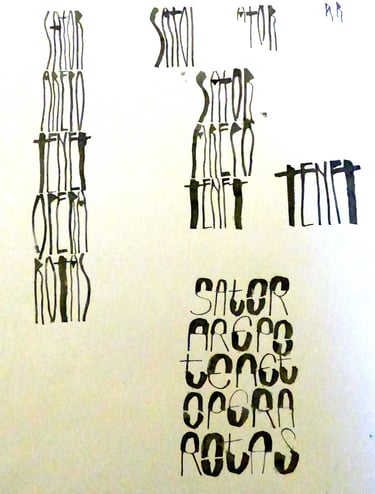 SATOR
AREPO
TENET
OPERA
ROTAS
ATOR
SATOR
AREPO
TENET
TENET
SAtOR
AREPO
tENEt
OPERA
ROtAS